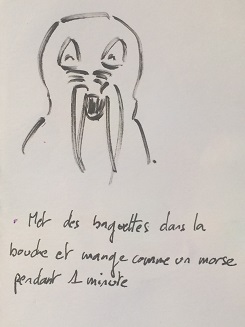 . Met des baguettes dans la
bouche et mange comme un morse
pendant 1 minute